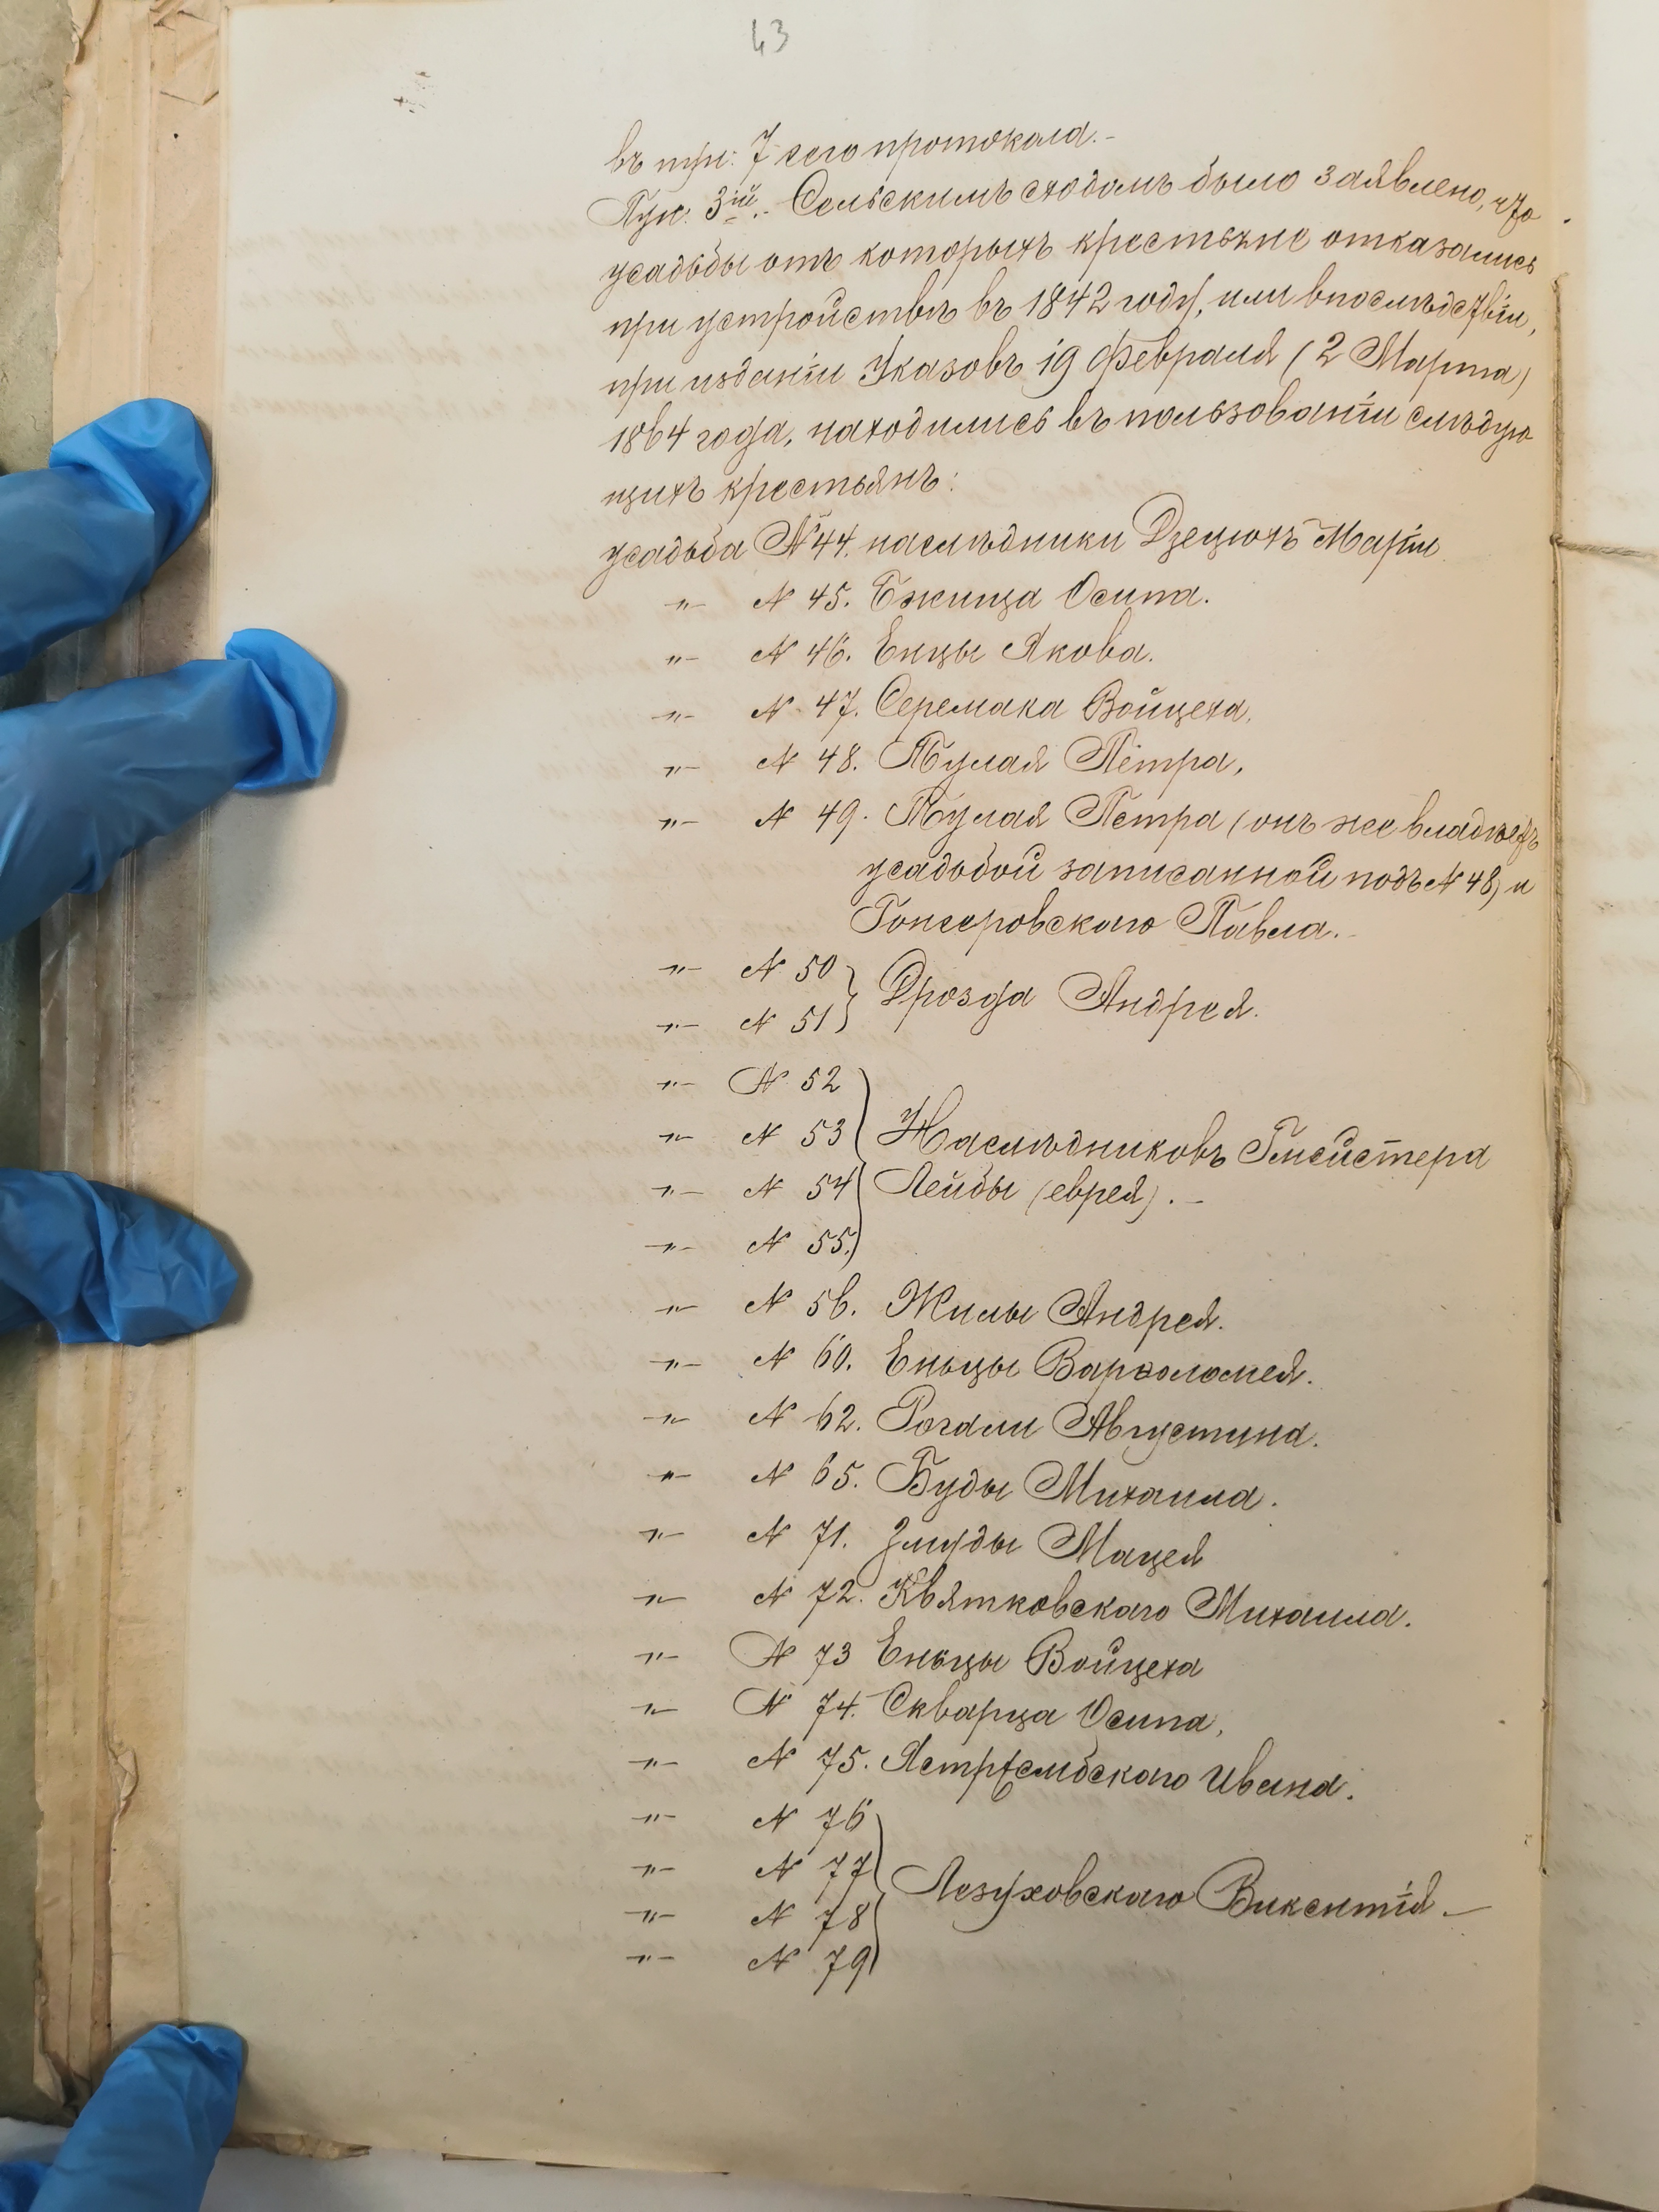 43
въ пун: 7 сего протокола.-
Пун: 3ій.- Сельскимъ сходомъ было заявлено, что
усадьбы отъ которыхъ крестьяне отказались
при устройствѣ въ 1842 году, или впослѣдствіи,
при изданіи Указовъ 19 Февраля (2 Марта)
1864 года, находились въ пользованіи слѣдую
щихъ крестьянъ:
усадьба № 44. наслѣдники Дзецюхъ Маріи
-"- N 45. Бжица Осипа.
-"- N 46. Енцы Якова.
-"- N 47. Серемака Войцеха,
-"- N 48. Пулая Петра,
-"- N 49. Пулая Петра (онъ же владѣетъ
усадьбой записанной подъ N 48) и
Гонсеровскаго Павла.-
-"- N 50
-"- N 51 } Дрозда Андрея.
-"- N 52
-"- N 53 } Наслѣдниковъ
-"- N 54 Лейбы (еврея).-
-"- N 55.
-"- N 56. Жилы Андрея.
-"- N 60. Еньцы Варфоломея.
-"- N 62. Рогали Августина.
-"- N 65. Буды Михаила.
-"- N 71. Змуды Мацея
-"- N 72. Квятковскаго Михаила.
-"- N 73 Еньцы Войцеха
-"- N 74. Скварца Осипа,
-"- N 75. Ястржембскаго Ивана.
-"- N 76
-"- N 77 } Лезуховскаго Викентія.-
-"- N 78
-"- N 79